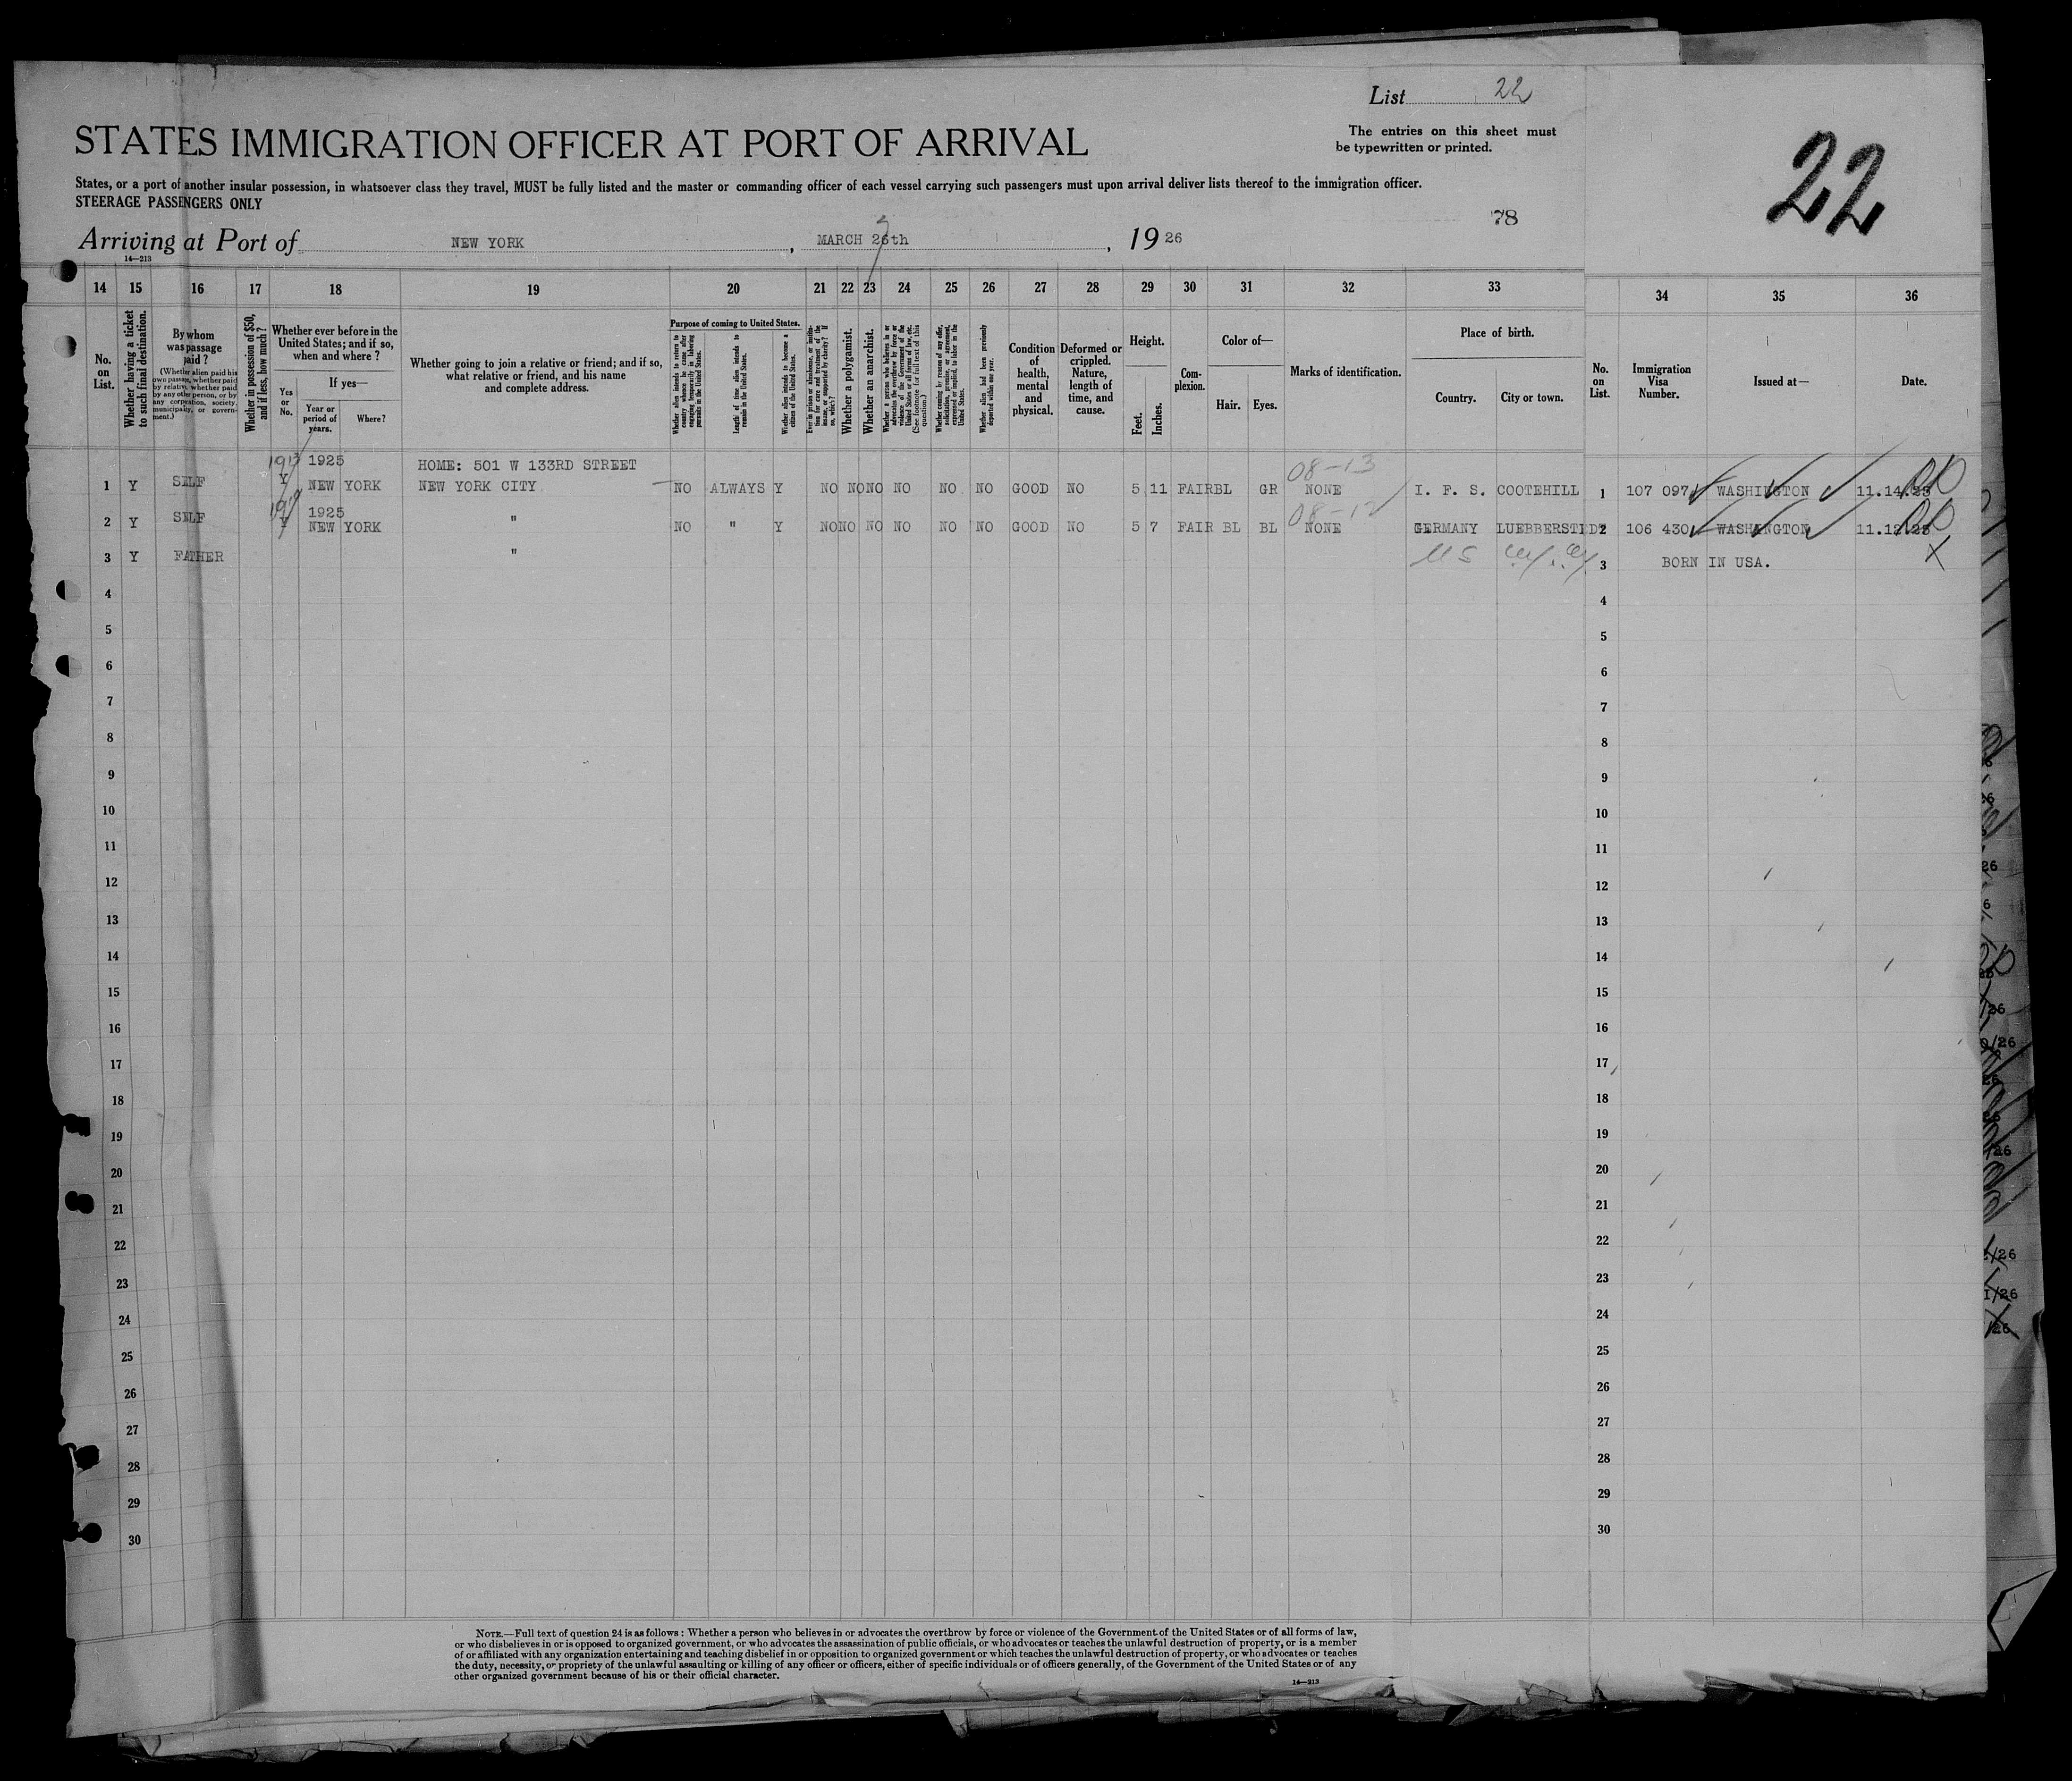 List 22
The entries on this sheet must
be typewritten or printed.
22
STATES IMMIGRATION OFFICER AT PORT OF ARRIVAL
States, or a port of another insular possession, in whatsoever class they travel, MUST be fully listed and the master or commanding officer of each vessel carrying such passengers must upon arrival deliver lists thereof to the immigration officer.
STEERAGE PASSENGERS ONLY
78
Arriving at Port of NEW YORK, MARCH 26th, 19 26
14—213
14 15 16 17 18 19 20 21 22 23 24 25 26 27 28 29 30 31 32 33 34 35 36
No. on List.
Whether having a ticket to such final destination.
By whom was passage paid?
(Whether alien paid his own passage, whether paid by relative, whether paid by any other person, or by any corporation, society, municipality, or government.)
Whether in possession of $50, and if less, how much?
Whether ever before in the United States; and if so, when and where?
Yes or No.
If yes—
Year or period of years.
Where?
Whether going to join a relative or friend; and if so, what relative or friend, and his name and complete address.
Purpose of coming to United States.
Whether alien intends to return to country whence he came after engaging temporarily in laboring pursuits in the United States.
Length of time alien intends to remain in the United States.
Whether alien intends to become a citizen of the United States.
Ever in prison or almshouse, or institution for care and treatment of the insane, or supported by charity? If so, which?
Whether a polygamist.
Whether an anarchist.
Whether a person who believes in or advocates the overthrow by force or violence of the Government of the United States or all forms of law, etc. (See footnote for full text of this question.)
Whether coming by reason of any offer, solicitation, promise, or agreement, expressed or implied, to labor in the United States.
Whether alien had been previously deported within one year.
Condition of health, mental and physical.
Deformed or crippled. Nature, length of time, and cause.
Height.
Feet.
Inches.
Complexion.
Color of—
Hair.
Eyes.
Marks of identification.
Place of birth.
Country.
City or town.
No. on List.
Immigration Visa Number.
Issued at—
Date.
1913 1925 HOME: 501 W 133RD STREET 08-13
1 Y SELF Y NEW YORK NEW YORK CITY NO ALWAYS Y NO NO NO NO NO NO GOOD NO 5 11 FAIR BL GR NONE I. F. S. COOTEHILL 1 107 097 WASHINGTON 11.14.25
1925 08-12
2 Y SELF Y NEW YORK " NO " Y NO NO NO NO NO NO GOOD NO 5 7 FAIR BL BL NONE GERMANY LUEBBERSTEDT 2 106 430 WASHINGTON 11.12.25
3 Y FATHER " US 3 BORN IN USA. X
4 4
5 5
6 6
7 7
8 8
9 9
10 10
11 11
12 12
13 13
14 14
15 15
16 16
17 17
18 18
19 19
20 20
21 21
22 22
23 23
24 24
25 25
26 26
27 27
28 28
29 29
30 30
NOTE.—Full text of question 24 is as follows: Whether a person who believes in or advocates the overthrow by force or violence of the Government of the United States or of all forms of law,
or who disbelieves in or is opposed to organized government, or who advocates the assassination of public officials, or who advocates or teaches the unlawful destruction of property, or is a member
of or affiliated with any organization entertaining and teaching disbelief in or opposition to organized government or which teaches the unlawful destruction of property, or who advocates or teaches
the duty, necessity, or propriety of the unlawful assaulting or killing of any officer or officers, either of specific individuals or of officers generally, of the Government of the United States or of any
other organized government because of his or their official character.
14—213